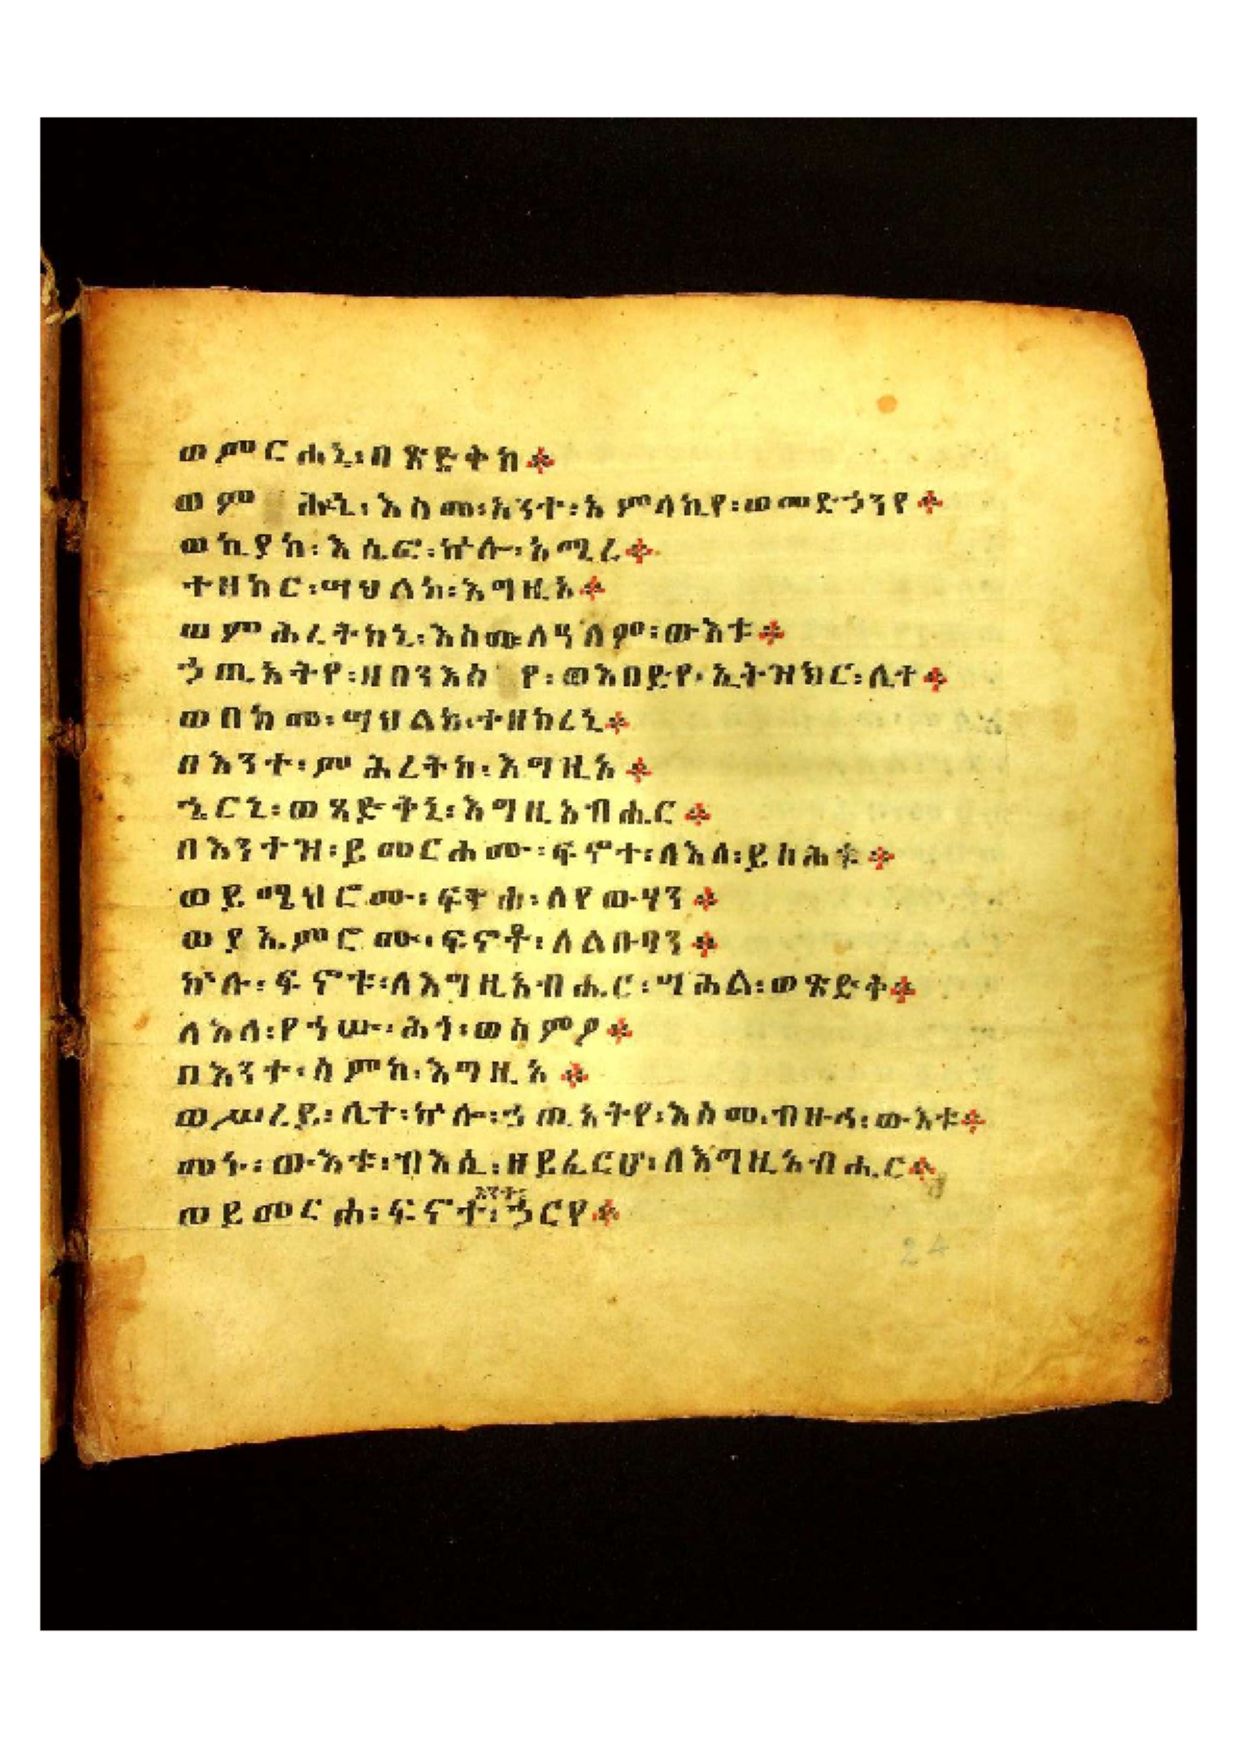 ወምርሐኒ፡በጽድቅከ፨
ወም ሕረኒ፡እስመ፡አንተ፡አምላኪየ፡ወመድኃንየ፨
ወኪያከ፡እሴፎ፡ኵሎ፡አሚረ፨
ተዘከር፡ሣህለከ፡እግዚአ፨
ወምሕረትከኒ፡እስመ፡ለዓለም፡ውእቱ፨
ኃጢአትየ፡ዘበንእስ የ፡ወእበድየ፡ኢትዝክር፡ሊተ፨
ወበከመ፡ሣህልከ፡ተዘከረኒ፨
በእንተ፡ምሕረትከ፡እግዚአ፨
ኄርኒ፡ወጻድቅኒ፡እግዚአብሔር፨
በእንተዝ፡ይመርሖሙ፡ፍኖተ፡ለእለ፡ይስሕቱ፨
ወይሜህሮሙ፡ፍትሐ፡ለየውሃን፨
ወያኤምሮሙ፡ፍኖቶ፡ለልቡባን፨
ኵሉ፡ፍኖቱ፡ለእግዚአብሔር፡ሣሕል፡ወጽድቅ፨
ለእለ፡የኀሡ፡ሕጎ፡ወስምዖ፨
በእንተ፡ስምከ፡እግዚአ፨
ወሥረይ፡ሊተ፡ኵሎ፡ኃጢአትየ፡እስመ፡ብዙኅ፡ውእቱ፨
መኑ፡ውእቱ፡ብእሲ፡ዘይፈርሆ፡ለእግዚአብሔር፨
እንተ፡
ወይመርሖ፡ፍኖተ፡ኃርየ፨
24